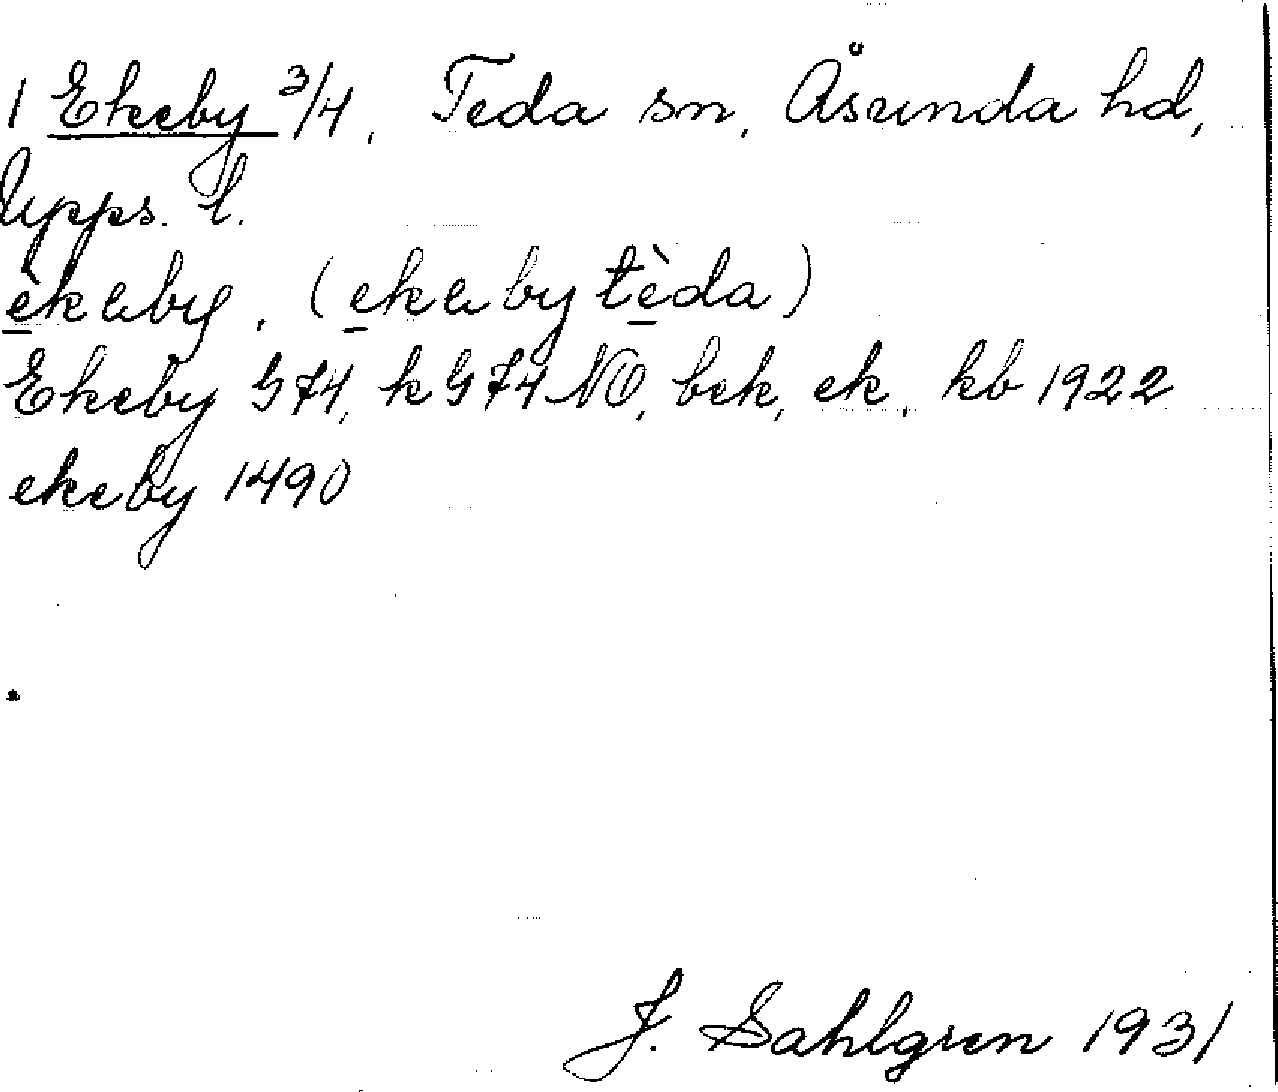 1 Ekeby 3/4, Teda sn, Åsunda hd,
Upps. l.
èkəby, (ekəby tèda)
Ekeby G74, k G74 NO, bek, ek, kb 1922
ekeby 1490
J. Sahlgren 1931